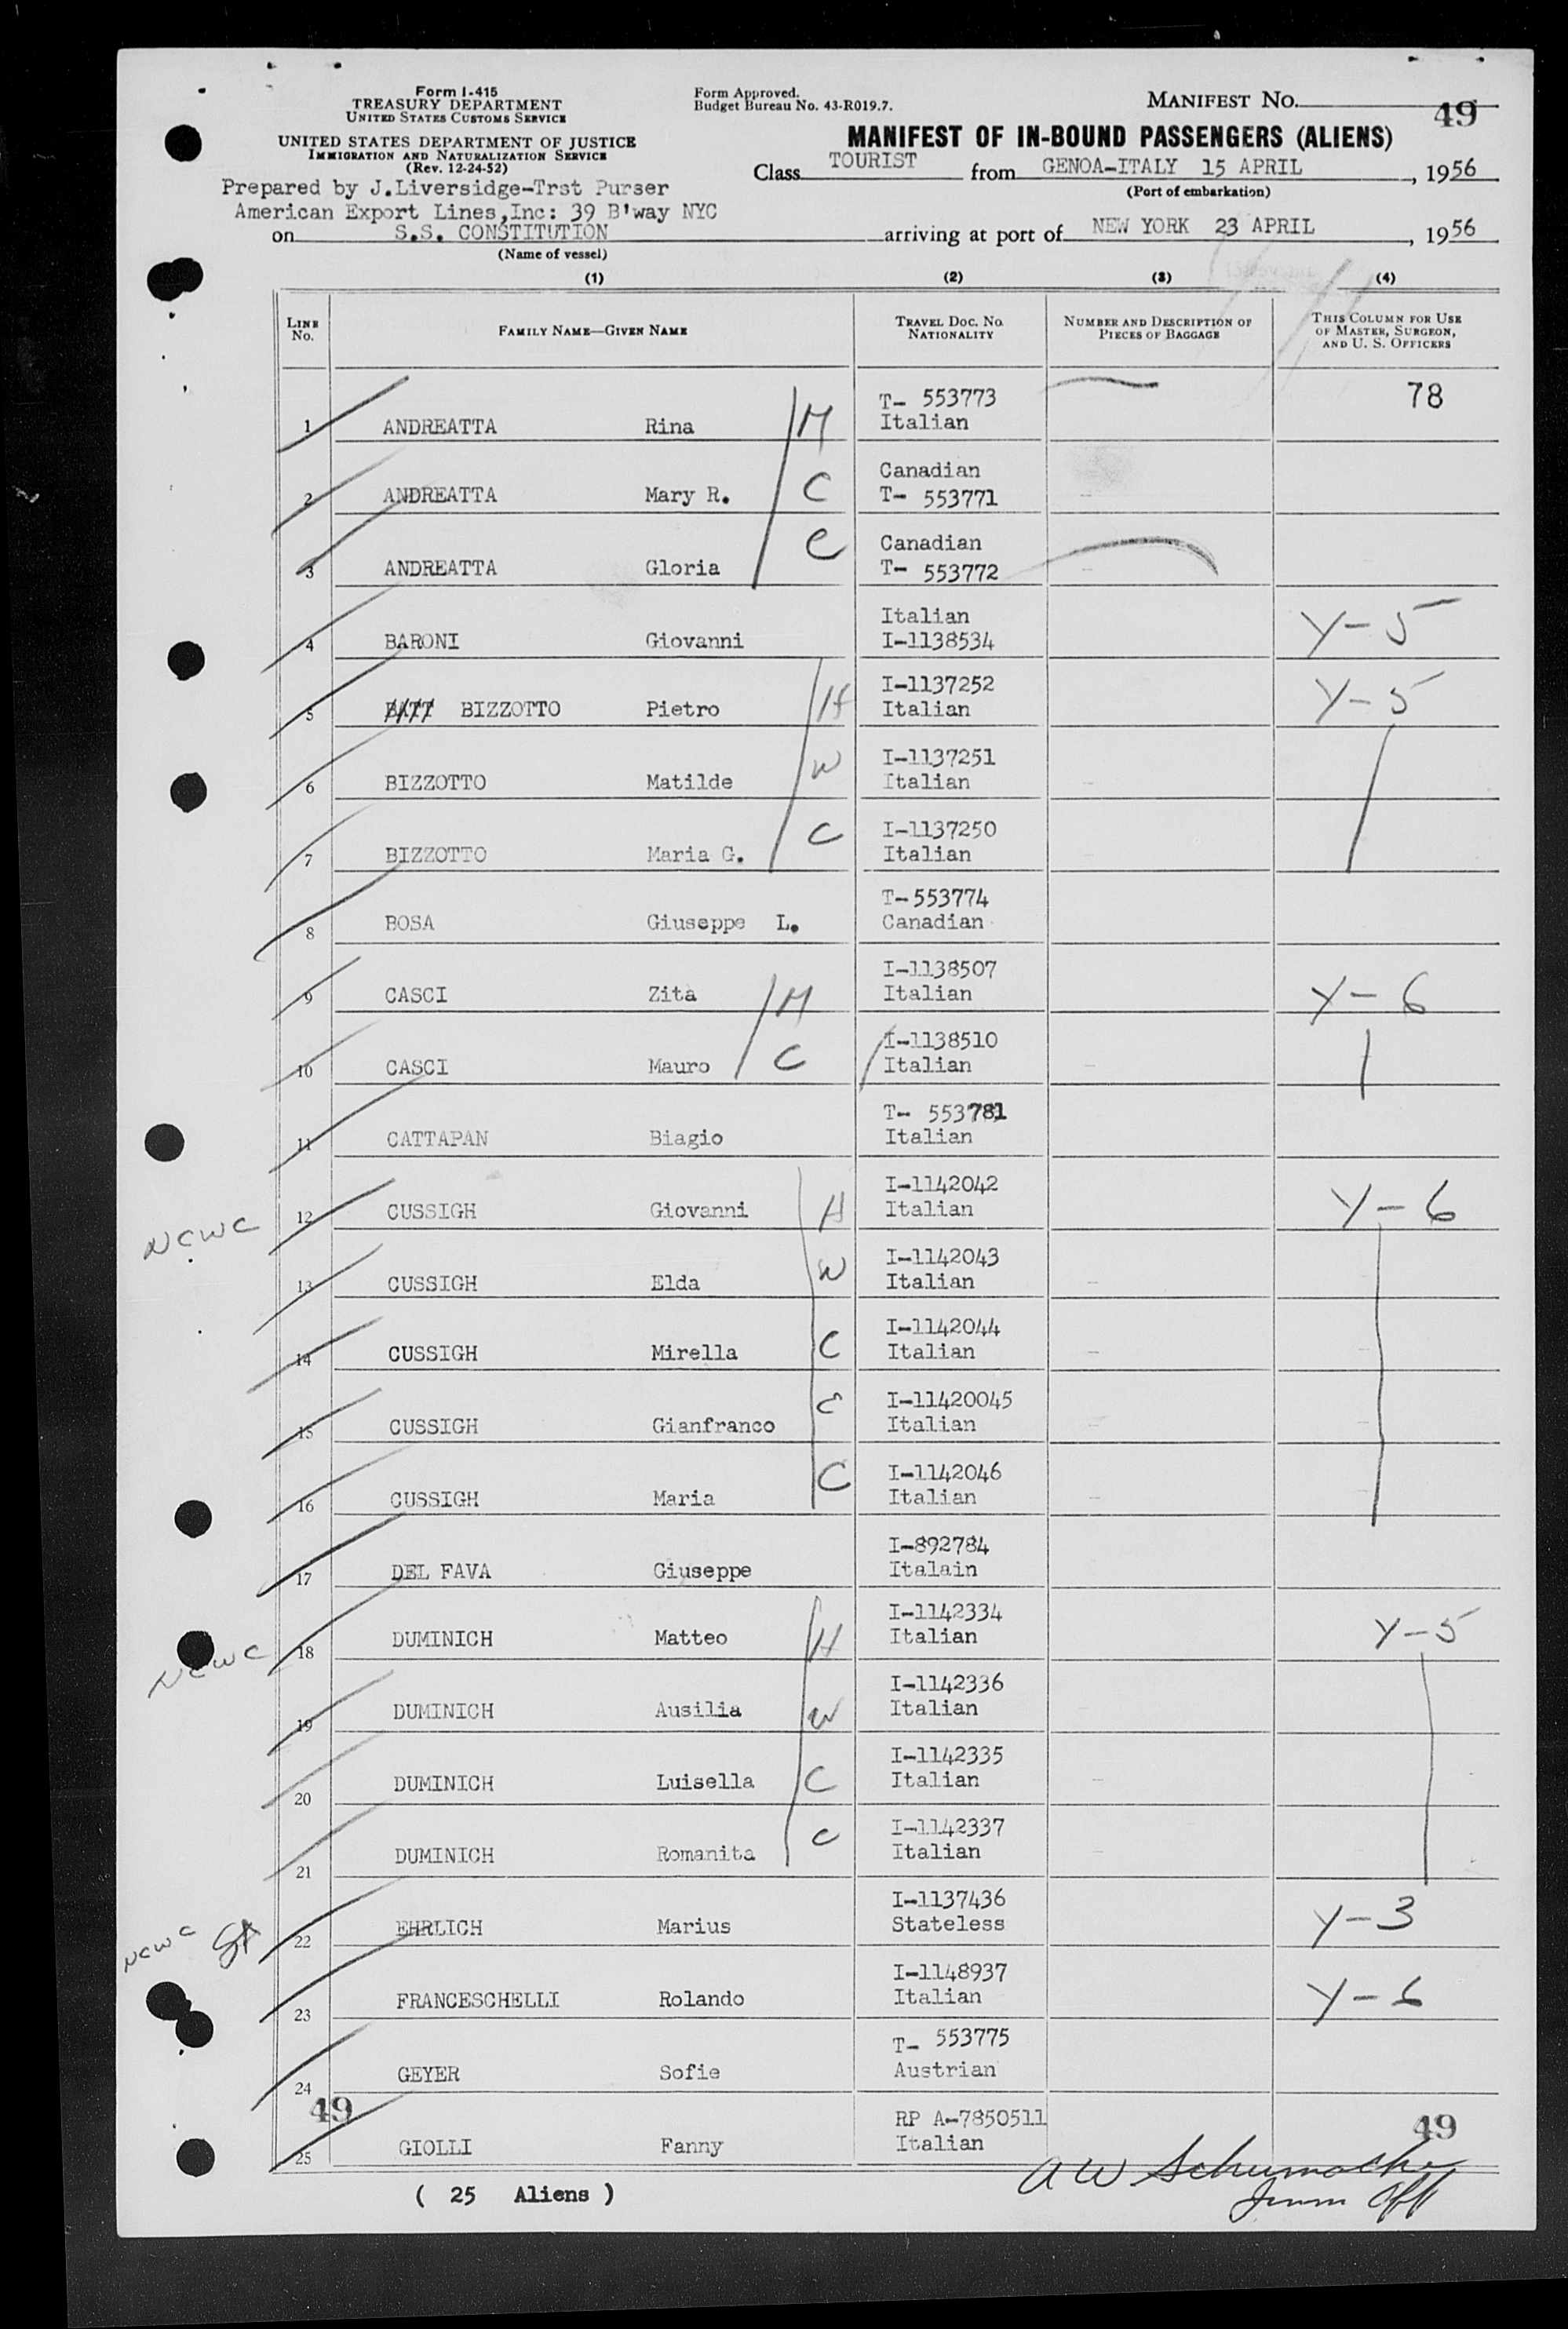 Form I-415
TREASURY DEPARTMENT
UNITED STATES CUSTOMS SERVICE
UNITED STATES DEPARTMENT OF JUSTICE
IMMIGRATION AND NATURALIZATION SERVICE
(Rev. 12-24-52)
Form Approved.
Budget Bureau No. 43-R019.7.
MANIFEST NO.
49
MANIFEST OF IN-BOUND PASSENGERS (ALIENS)
Class TOURIST from GENOA-ITALY 15 APRIL, 1956
(Port of embarkation)
Prepared by J.Liversidge-Trst Purser
American Export Lines,Inc: 39 B'way NYC
on S.S. CONSTITUTION arriving at port of NEW YORK 23 APRIL, 1956
(Name of vessel)
(1) (2) (3) (4)
LINE NO. FAMILY NAME—GIVEN NAME TRAVEL DOC. NO. NATIONALITY NUMBER AND DESCRIPTION OF PIECES OF BAGGAGE THIS COLUMN FOR USE OF MASTER, SURGEON, AND U. S. OFFICERS
1 ANDREATTA Rina M T- 553773 Italian 78
2 ANDREATTA Mary R. C Canadian T- 553771
3 ANDREATTA Gloria C Canadian T- 553772
4 BARONI Giovanni Italian I-1138534 Y-5
5 BATT BIZZOTTO Pietro H I-1137252 Italian Y-5
6 BIZZOTTO Matilde W I-1137251 Italian
7 BIZZOTTO Maria G. C I-1137250 Italian
8 BOSA Giuseppe L. T-553774 Canadian
9 CASCI Zita M I-1138507 Italian Y-6
10 CASCI Mauro C I-1138510 Italian
11 CATTAPAN Biagio T- 553781 Italian
NCWC 12 CUSSIGH Giovanni H I-1142042 Italian Y-6
13 CUSSIGH Elda W I-1142043 Italian
14 CUSSIGH Mirella C I-1142044 Italian
15 CUSSIGH Gianfranco C I-11420045 Italian
16 CUSSIGH Maria C I-1142046 Italian
17 DEL FAVA Giuseppe I-892784 Italain
NCWC 18 DUMINICH Matteo H I-1142334 Italian Y-5
19 DUMINICH Ausilia W I-1142336 Italian
20 DUMINICH Luisella C I-1142335 Italian
21 DUMINICH Romanita C I-1142337 Italian
NCWC 22 EHRLICH Marius I-1137436 Stateless Y-3
23 FRANCESCHELLI Rolando I-1148937 Italian Y-6
24 GEYER Sofie T- 553775 Austrian
49
25 GIOLLI Fanny RP A-7850511 Italian
49
( 25 Aliens )
A W Schumacher
Imm Off